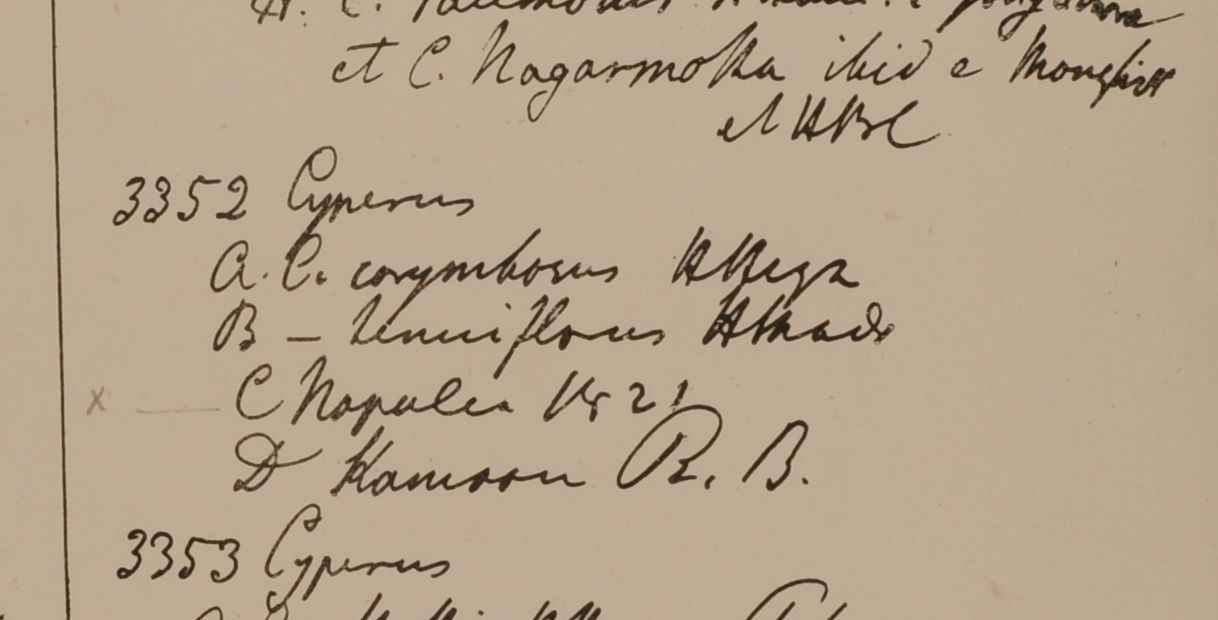 et C. Nagarmotha ibid e Monghir
et HBC
3352 Cyperus
A. C. corymbosus HHeyn
B – tenuiflorus HMadr
x C Napalia 1821
D Kamoon R. B.
3353 Cyperus